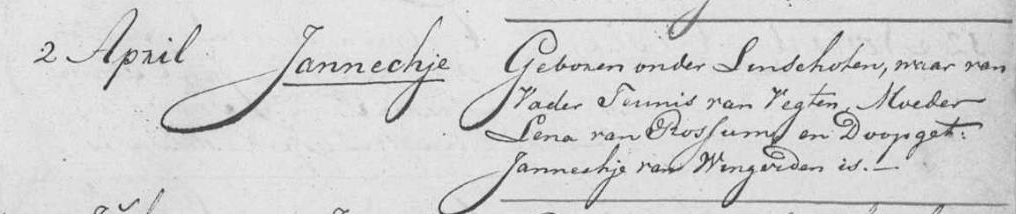 2 April Jannechje Geboren onder Linschoten, waar van
Vader Teunis van Vegten, Moeder
Lena van Rossum, en Doopget:
Jannechje van Wingerden is.—